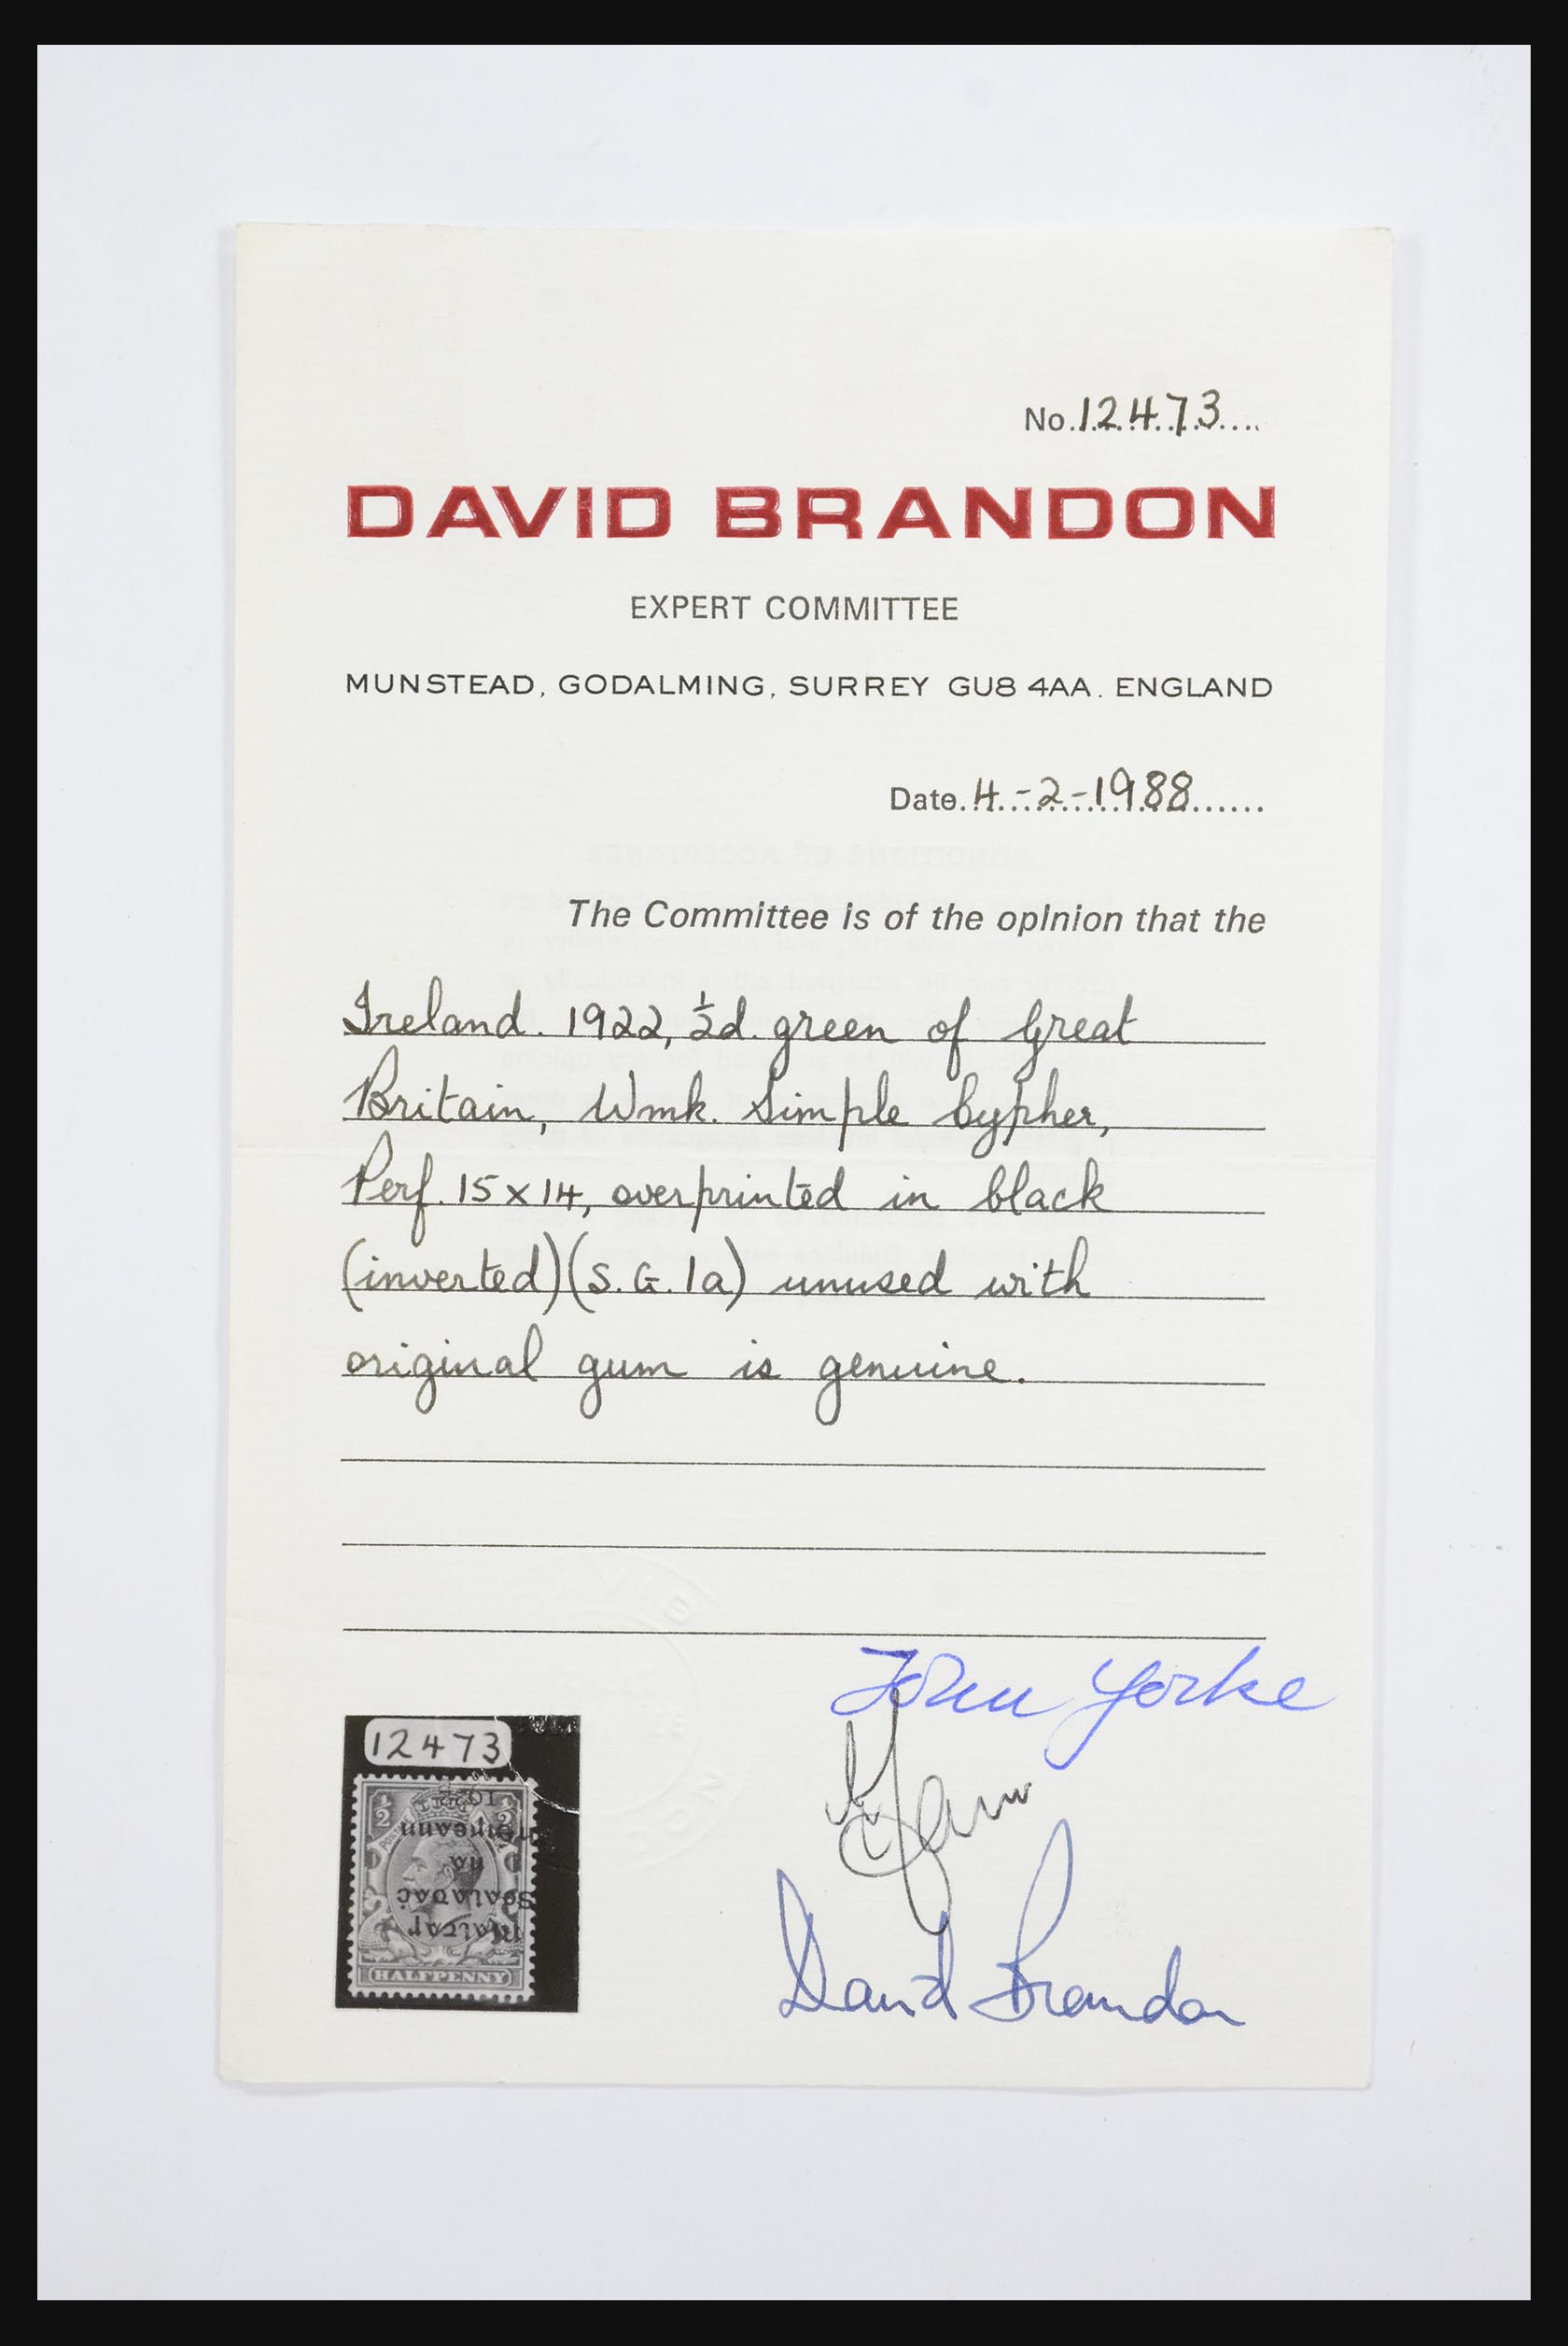 No. 12473
DAVID BRANDON
EXPERT COMMITTEE
MUNSTEAD, GODALMING, SURREY GU8 4AA. ENGLAND
Date. 4-2-1988
The Committee is of the opinion that the
Ireland. 1922, ½d. green of Great
Britain, Wmk. Simple Cypher,
Perf. 15 x 14, overprinted in black
(inverted)(S.G. 1a) unused with
original gum is genuine.
John Yorke
David Brandon
12473
½ ½
HALFPENNY
Rialtar
Sealadac
na
hÉireann
1922